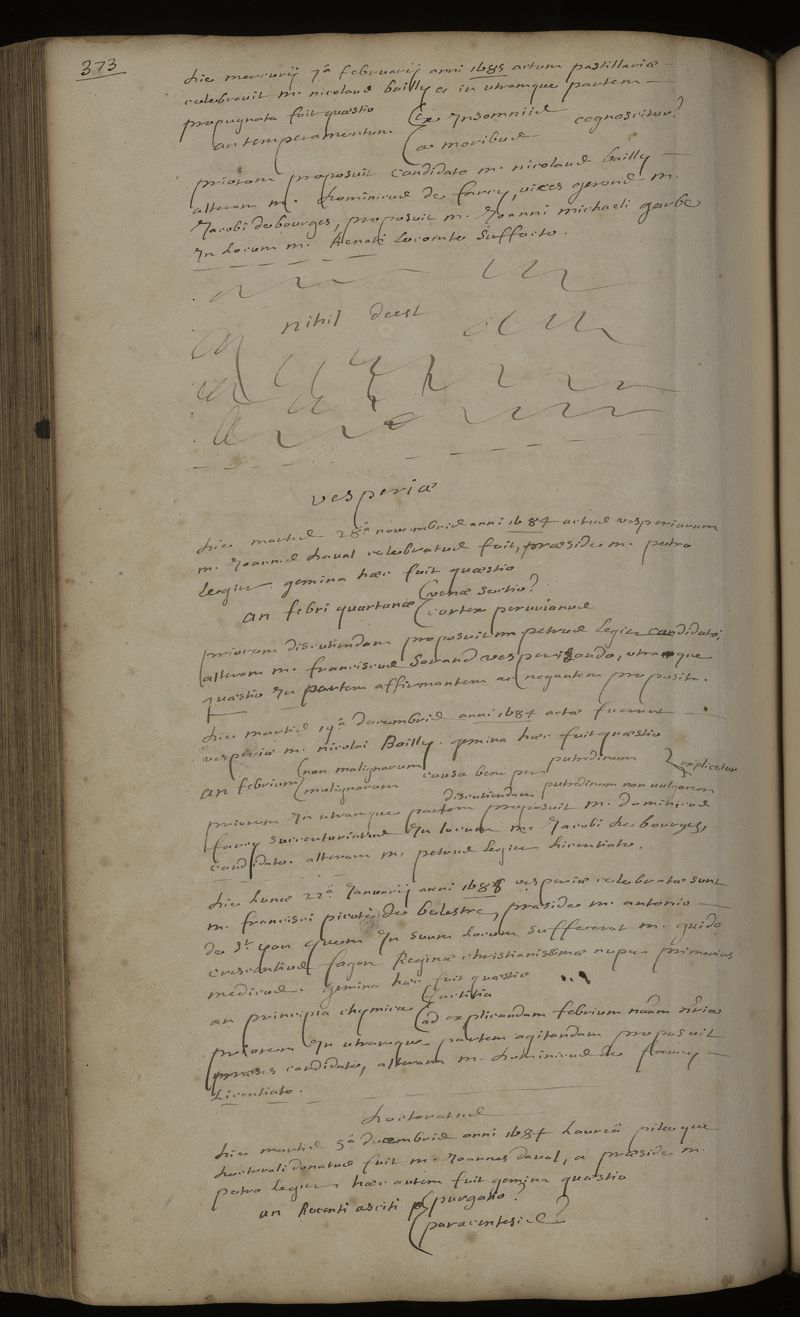 373
die mercurij 7ª februarij anni 1685 actum pastillariæ
celebravit m. nicolaus bailly et in utramque partem
propugnata fuit quæstio
an temperamentum (ex Insomniis cognoscitur?
(a moribus
priorem proposuit candidato m. nicolaus bailly
alteram m. dominicus de farcy, vices gerens m.
Jacobi debourges, proposuit m. Joanni michaeli garbe
In locum m. Renati Lecomte suffecto.
nihil deest
vesperiæ
die martis 28ª novembris anni 1684 actus vesperiarum
m. Joannis daval celebratus fuit, præside m. petro
legier gemina hæc fuit quæstio
an febri quartanæ (venæ sectio?
(cortex peruvianus
priorem discutiendam proposuit m petrus legier candidato,
alteram m. franciscus Sorand vesperisando, utraque
quæstio In partem affirmantem ac negantem proposita.
die martis 19ª decembris anni 1684 actæ fuerunt
vesperiæ m. nicolai Bailly. gemina hæc fuit quæstio
an febrium (non malignarum causa bene per putredinem explicetur
(malignarum putredinem non vulgarem
discutiendam
priorem In utramque partem proposuit m. dominicus
farcy succenturiatus In locum m. Jacobi de bourges,
candidato. alteram m. petrus legier licentiato.
die lunæ 22ª Januarij anni 1685 vesperiæ celebratæ sunt
m. francisci picoté de belestre, præside m. antonio
de St yon quem In suum locum suffecerat m. guido
crescentius fagon Reginæ christianissimæ nuper primarius
medicus. gemina hæc fuit quæstio
an principia chymica (factitia
(ad explicandam febrium naam nria
priorem In utramque partem agitandam proposuit
præses candidato, alteram m. dominicus de farcy
Licentiato.
doctoratus
die martis 5ª decembris anni 1684 laureâ pileoque
doctorali donatus fuit m. Joannes daval, a præside m.
petro legier, hæc autem fuit gemina quæstio
an Recenti asciti (purgatio?
(paracentesis?